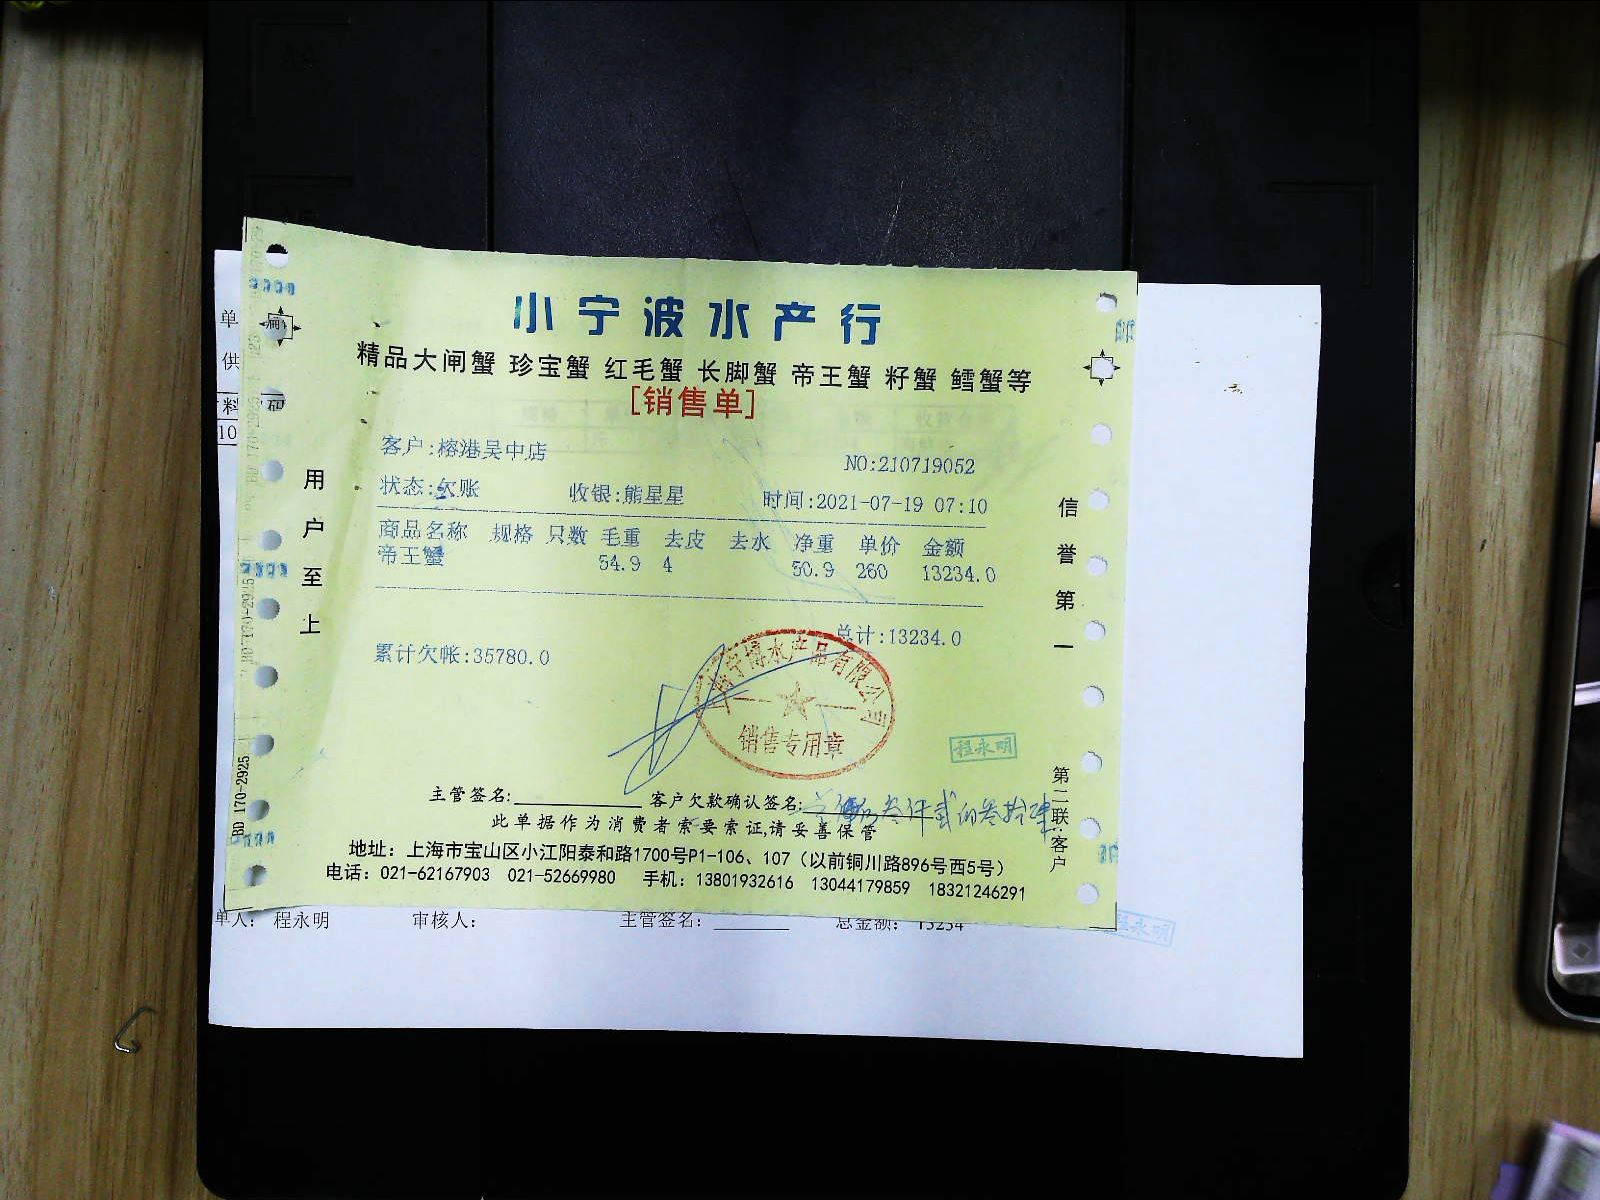 小宁波水产行
精品大闸蟹 珍宝蟹 红毛蟹 长脚蟹 帝王蟹 籽蟹 鳕蟹等
[销售单]
客户:榕港吴中店
NO:210719052
状态:欠账 收银:熊星星 时间:2021-07-19 07:10
商品名称 规格 只数 毛重 去皮 去水 净重 单价 金额
帝王蟹 54.9 4 50.9 260 13234.0
总计:13234.0
累计欠帐:35780.0
用户至上
信誉第一
销售专用章
程永明
主管签名: 客户欠款确认签名:
叁仟贰佰叁拾肆
此单据作为消费者索要索证,请妥善保管
地址：上海市宝山区小江阳泰和路1700号P1-106、107（以前铜川路896号西5号）
电话：021-62167903 021-52669980 手机：13801932616 13044179859 18321246291
第二联:客户
BD 170-2925
单
供
料
码
10
单人： 程永明 审核人： 主管签名： 总金额： 13234
程永明